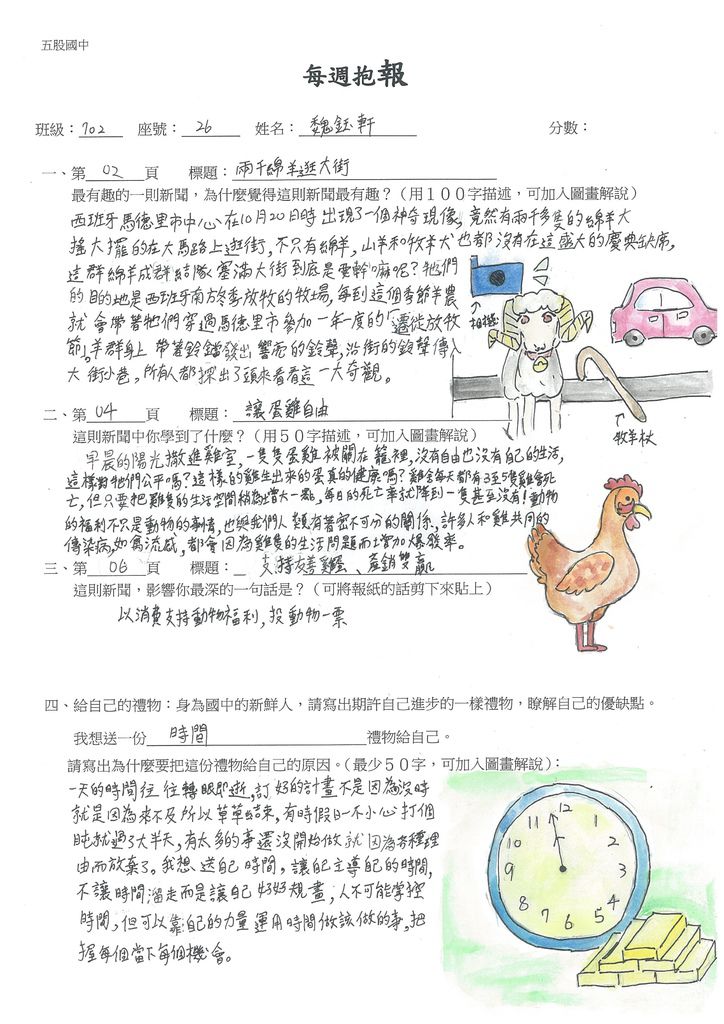 五股國中
每週抱報
班級：702 座號：26 姓名：魏鈺軒 分數：
一、第 02 頁 標題：兩千綿羊逛大街
最有趣的一則新聞，為什麼覺得這則新聞最有趣？（用１００字描述，可加入圖畫解說）
西班牙馬德里市中心在10月20日時出現了一個神奇現像，竟然有兩千多隻的綿羊大
搖大擺的在大馬路上逛街，不只有綿羊，山羊和牧羊犬也都沒有在這盛大的慶典缺席，
這群綿羊成群結隊塞滿大街到底是要幹嘛呢？牠們
的目的地是西班牙南方冬季放牧的牧場，每到這個季節羊農
就會帶著牠們穿過馬德里市參加一年一度的「遷徙放牧
節」。羊群身上帶著鈴鐺發出響亮的鈴聲，沿街的鈴聲傳入
大街小巷，所有人都探出了頭來看看這一大奇觀。
相機
牧羊杖
二、第 04 頁 標題：讓蛋雞自由
這則新聞中你學到了什麼？（用５０字描述，可加入圖畫解說）
早晨的陽光撒進雞室，一隻隻蛋雞被關在籠裡，沒有自由也沒有自己的生活，
這樣對牠們公平嗎？這樣的雞生出來的蛋真的健康嗎？雞舍每天都有3至5隻雞會死
亡，但只要把雞隻的生活空間稍為增大一點，每日的死亡率就降到一隻甚至沒有！動物
的福利不只是動物的事情，也與我們人類有著密不可分的關係、許多人和雞共同的
傳染病，如禽流感，都會因為雞隻的生活問題而增加爆發率。
三、第 06 頁 標題：支持友善雞蛋、產銷雙贏
這則新聞，影響你最深的一句話是？（可將報紙的話剪下來貼上）
以消費支持動物福利，投動物一票
四、給自己的禮物：身為國中的新鮮人，請寫出期許自己進步的一樣禮物，瞭解自己的優缺點。
我想送一份 時間 禮物給自己。
請寫出為什麼要把這份禮物給自己的原因。（最少５０字，可加入圖畫解說）：
一天的時間往往轉眼即逝，訂好的計畫不是因為沒時
就是因為來不及所以草草結束，有時假日一不小心打個
盹就過了大半天，有太多的事還沒開始做就因為各種理
由而放棄了。我想送自己時間，讓自己主導自己的時間，
不讓時間溜走而是讓自己好好規畫，人不可能掌控
時間，但可以靠自己的力量運用時間做該做的事，把
握每個當下每個機會。
12
11 1
10 2
9 3
8 4
7 5
6